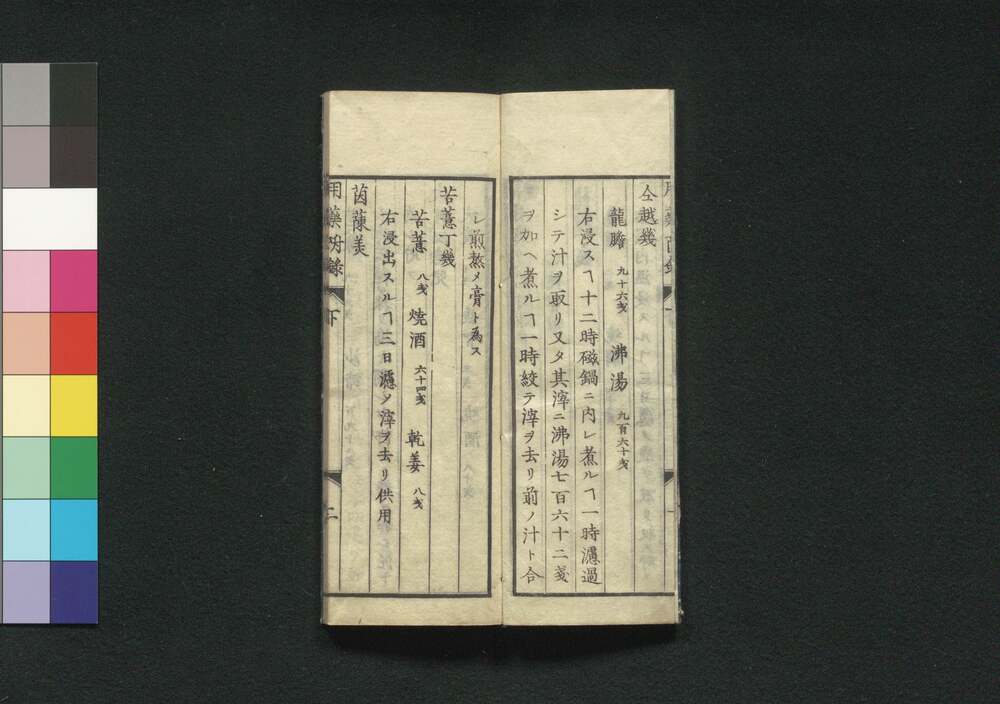 仝越幾
龍膽 九十六戔 沸湯 九百六十戔
右浸スヿ十二時磁鍋ニ內レ煮ルヿ一時濾過
シテ汁ヲ取リ又タ其滓ニ沸湯七百六十二戔
ヲ加ヘ煮ルヿ一時絞テ滓ヲ去リ前ノ汁ト合
レ煎熬メ膏ト為ス
苦薏丁幾
苦薏 八戔 焼酒 六十四戔 乾姜 八戔
右浸出スルヿ三日濾メ滓ヲ去リ供用
茵蔯羙
用藥 錄 下 二